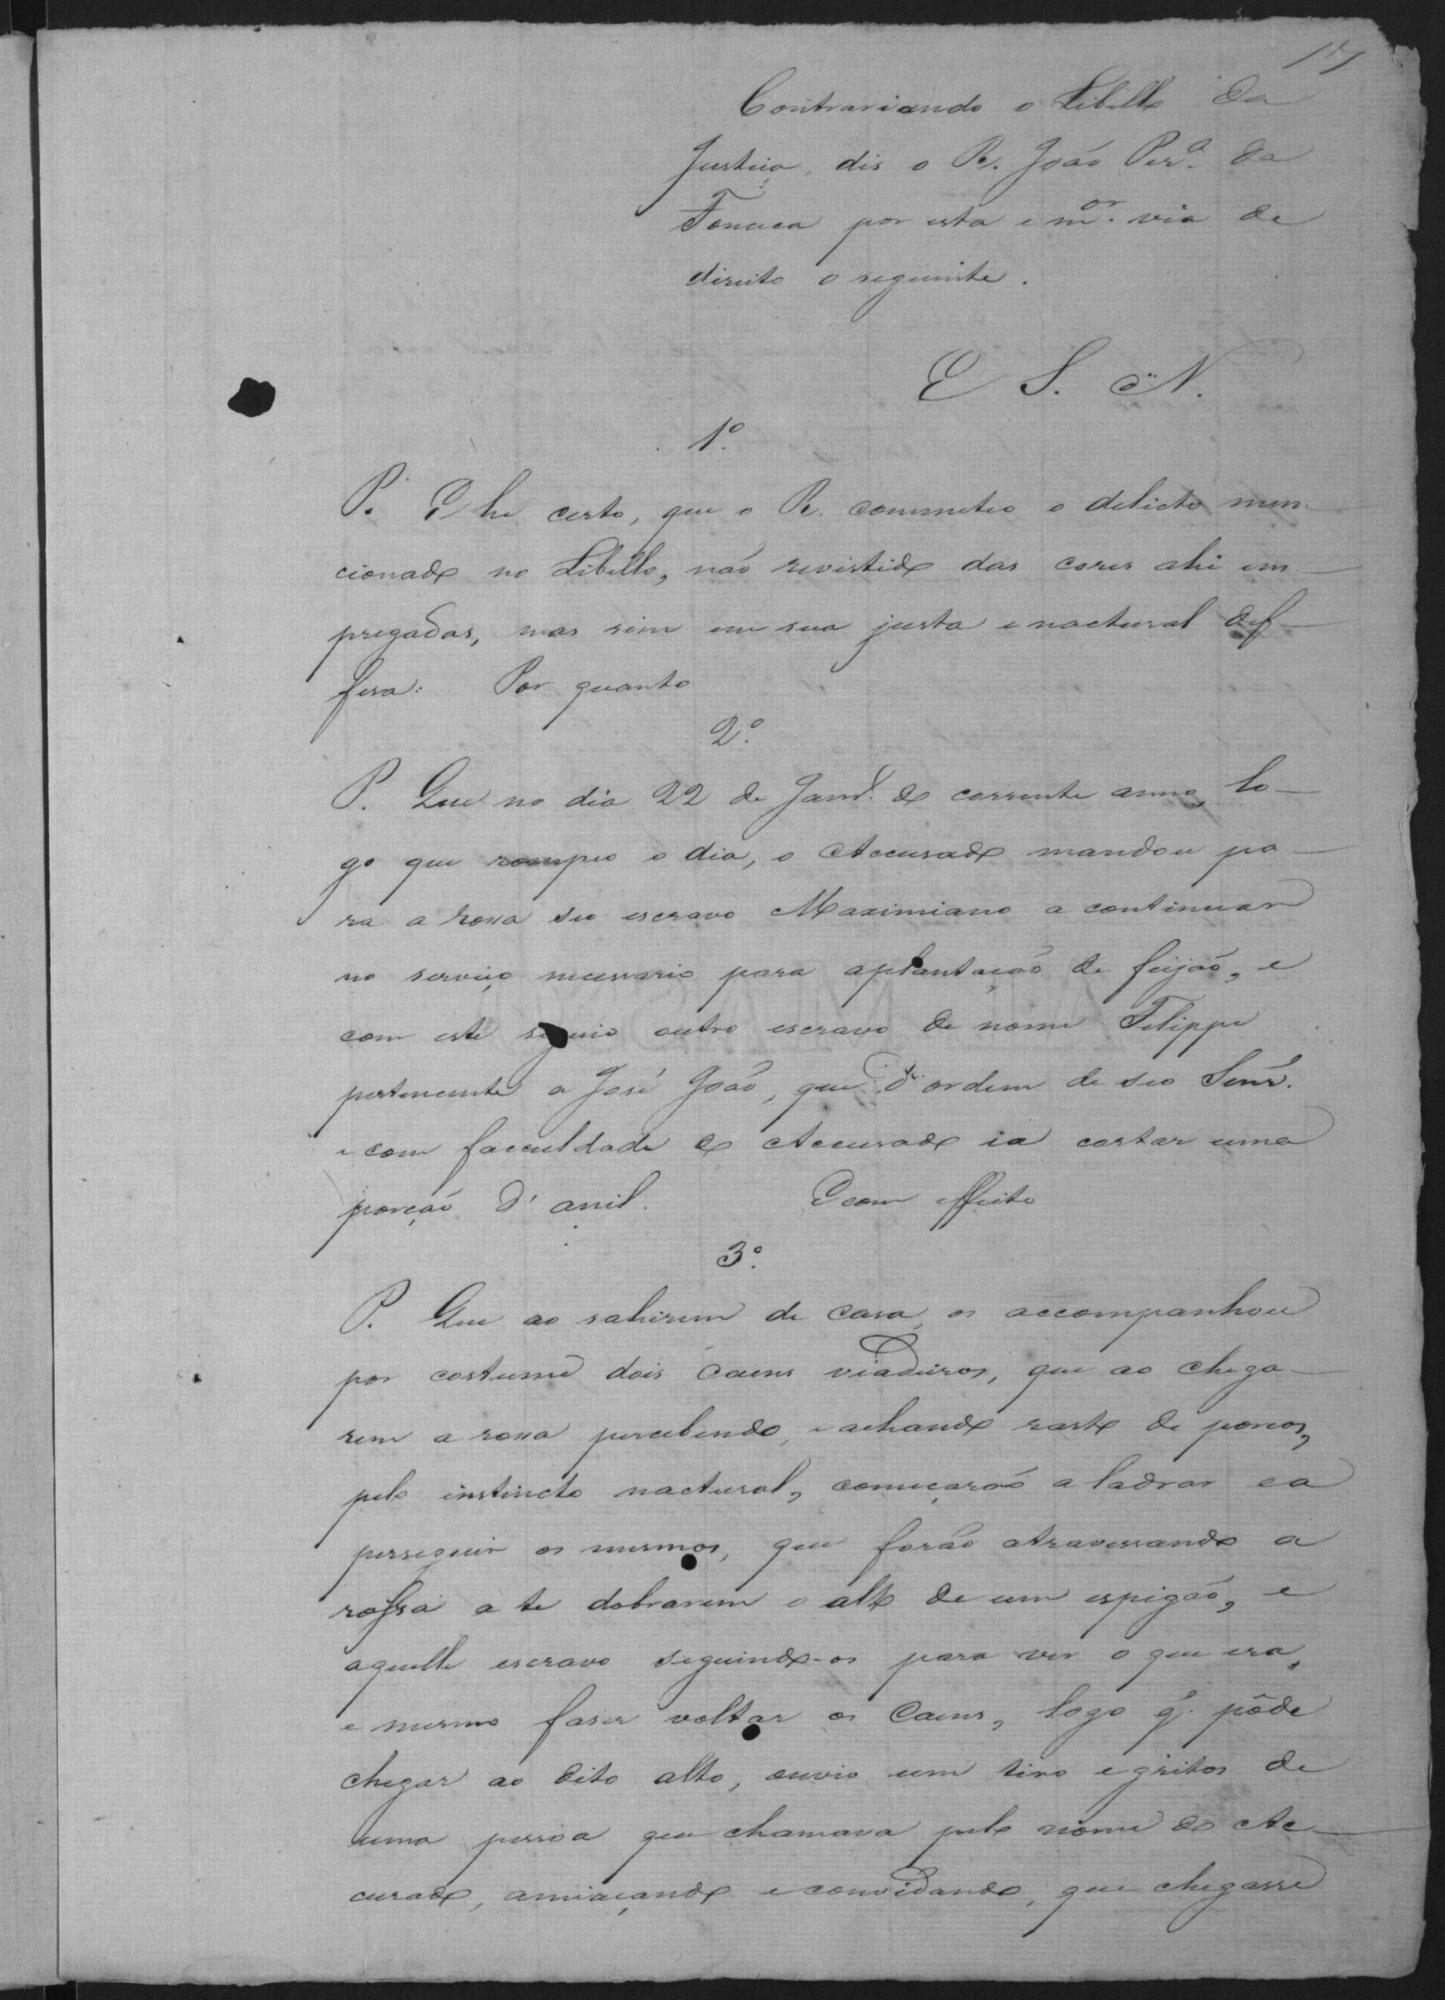 17
Contrariando o Libello da
Justiça, dis o R. João Per.ª da
Fonceca por esta e m.or via de
direito o seguinte.
E S. N.
1º
P. E he certo, que o R. commeteo o delicto men-
cionado no Libello, não revistido das cores ahi em-
pregadas, mas sim em sua justa e nactural def-
fesa: Por quanto
2º
P. Que no dia 22 de Janr.º do corrente anno, lo-
go que rompeo o dia, o Accusado mandou pa-
ra a rossa seo escravo Maximiano a continuar
no serviço necessario para aplantação de feijão, e
com este seguio outro escravo de nome Filippe
pertencente a José João, que d'ordem de seo Senr.
e com facculdade do Accusado ia cortar uma
porção d'anil. E com effeito
3º
P. Que ao sahirem de casa, os accompanhou
por costume dois Caens viadeiros, que ao chega-
rem a rossa percebendo, e achando rasto de porcos,
pelo instincto nactural, começarão a ladrar e a
perseguir os mesmos, que forão atravessando a
rossa a te dobrarem o alto de um espigão, e
aquelle escravo seguindo-os para ver o que era,
e mesmo faser voltar os Caens, logo q' pôde
chegar ao dito alto, ouvio um tiro e gritos de
uma pessoa que chamava pelo nome do Ac-
cusado, amiaçando e convidando, que chegasse